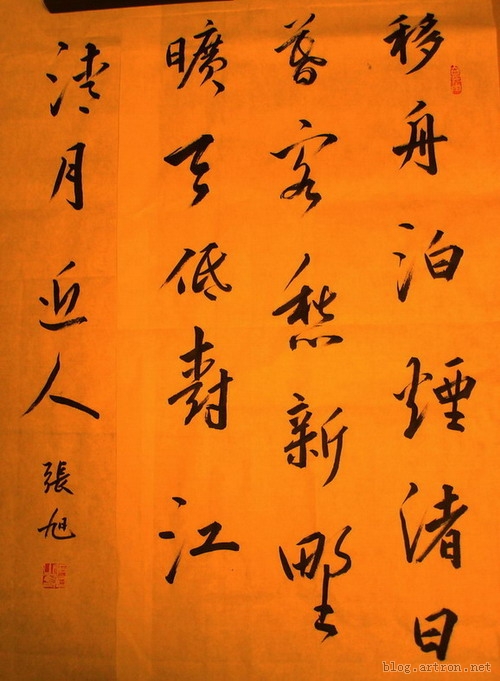 移舟泊煙渚日
暮客愁新野
曠天低樹江
清月近人
張旭
blog.artron.net